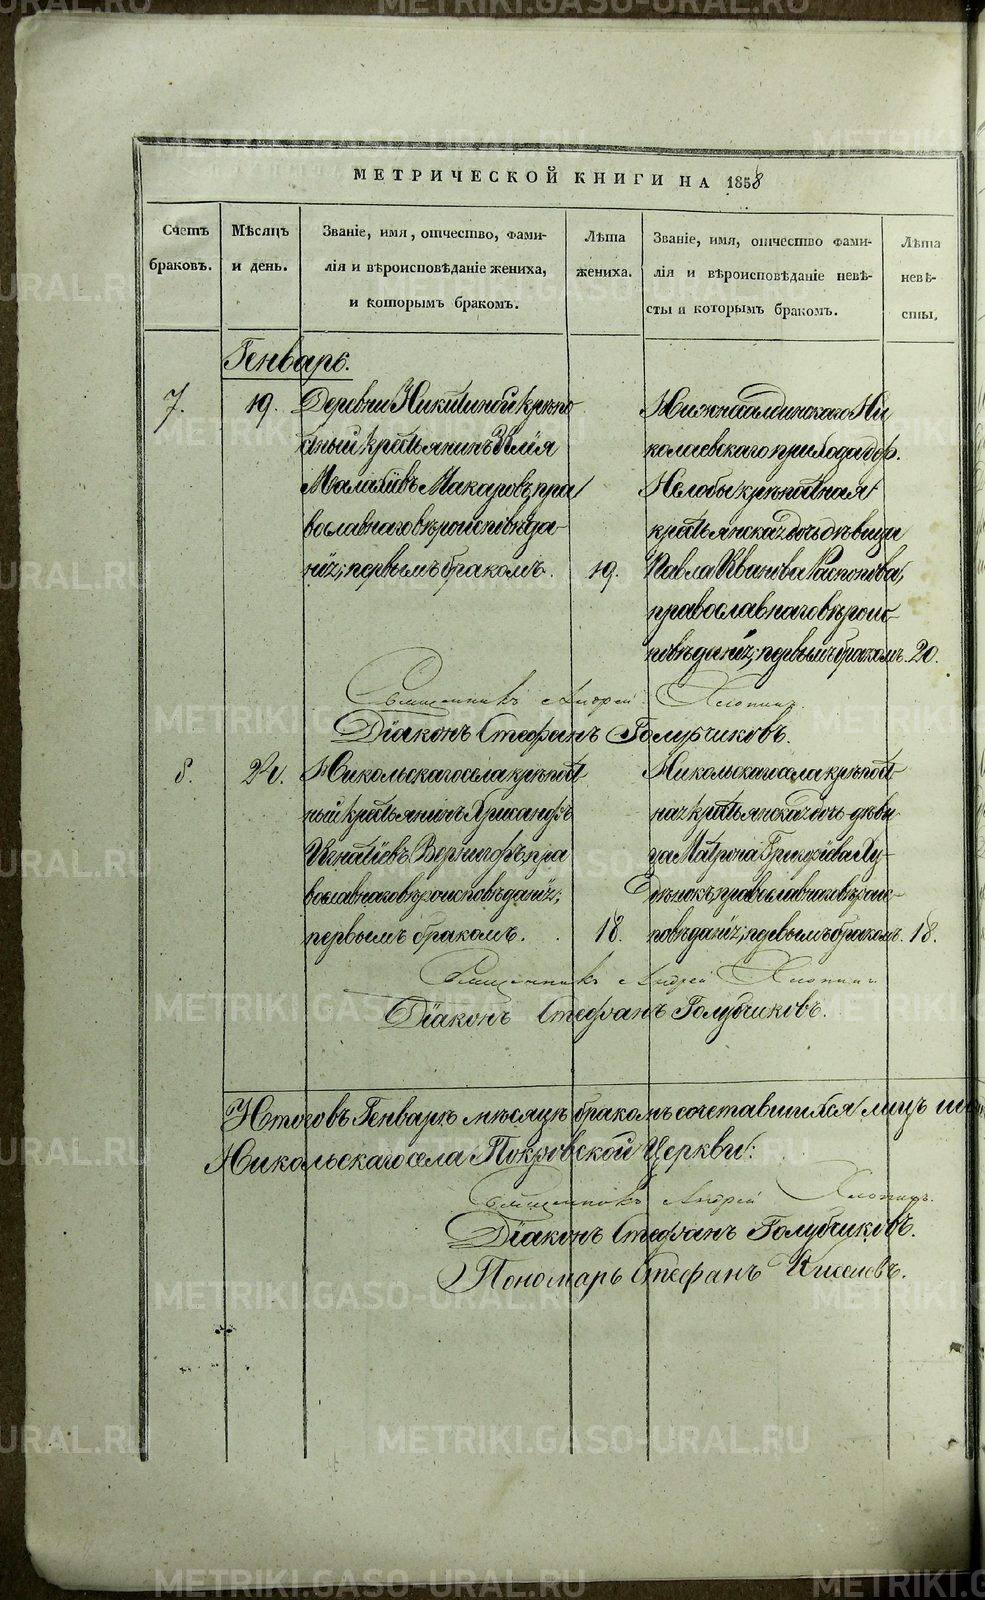 МЕТРИЧЕСКОЙ КНИГИ НА 1858
Счетъ браковъ.
Мѣсяцъ и день.
Званіе, имя, отчество, фами-
лія и вѣроисповѣданіе жениха,
и которымъ бракомъ.
Лѣта жениха.
Званіе, имя, отчество фами-
лія и вѣроисповѣданіе невѣ-
сты и которымъ бракомъ.
Лѣта невѣ-
сты.
Генварь.
7.
19.
Деревни Никитиной крѣпо
стный крестьянинъ Илія
Малахіевъ Макаровъ, пра
вославнаго вѣроисповѣда-
нія; первымъ бракомъ.
19.
Нижнесалдинскаго Ни
колаевскаго прихода дер.
Нелобы крѣпостная
крестьянская дочь дѣвица
Павла Иванова Распопова,
православнаго вѣроис-
повѣданія; первымъ бракомъ.
20.
Священникъ Андрей Хлопинъ.
Діаконъ Стефанъ Голубчиковъ.
8.
24.
Никольскаго села крѣпост
ный крестьянинъ Хрисанфъ
Игнатіевъ Вернигоръ, пра
вославнаго вѣроисповѣданія;
первымъ бракомъ.
18.
Никольскаго села крѣпост
ная крестьянская дочь дѣви
ца Матрона Григоріева Ху-
дѣнокъ, православнаго вѣроис-
повѣданія; первымъ бракомъ.
18.
Священникъ Андрей Хлопинъ
Діаконъ Стефанъ Голубчиковъ.
Итого въ Генварѣ мѣсяцѣ бракомъ сочетавшихся лицъ
Никольскаго села Покровской Церкви:
Священникъ Андрей Хлопинъ.
Діаконъ Стефанъ Голубчиковъ.
Пономарь Стефанъ Киселевъ.
METRIKI.GASO-URAL.RU